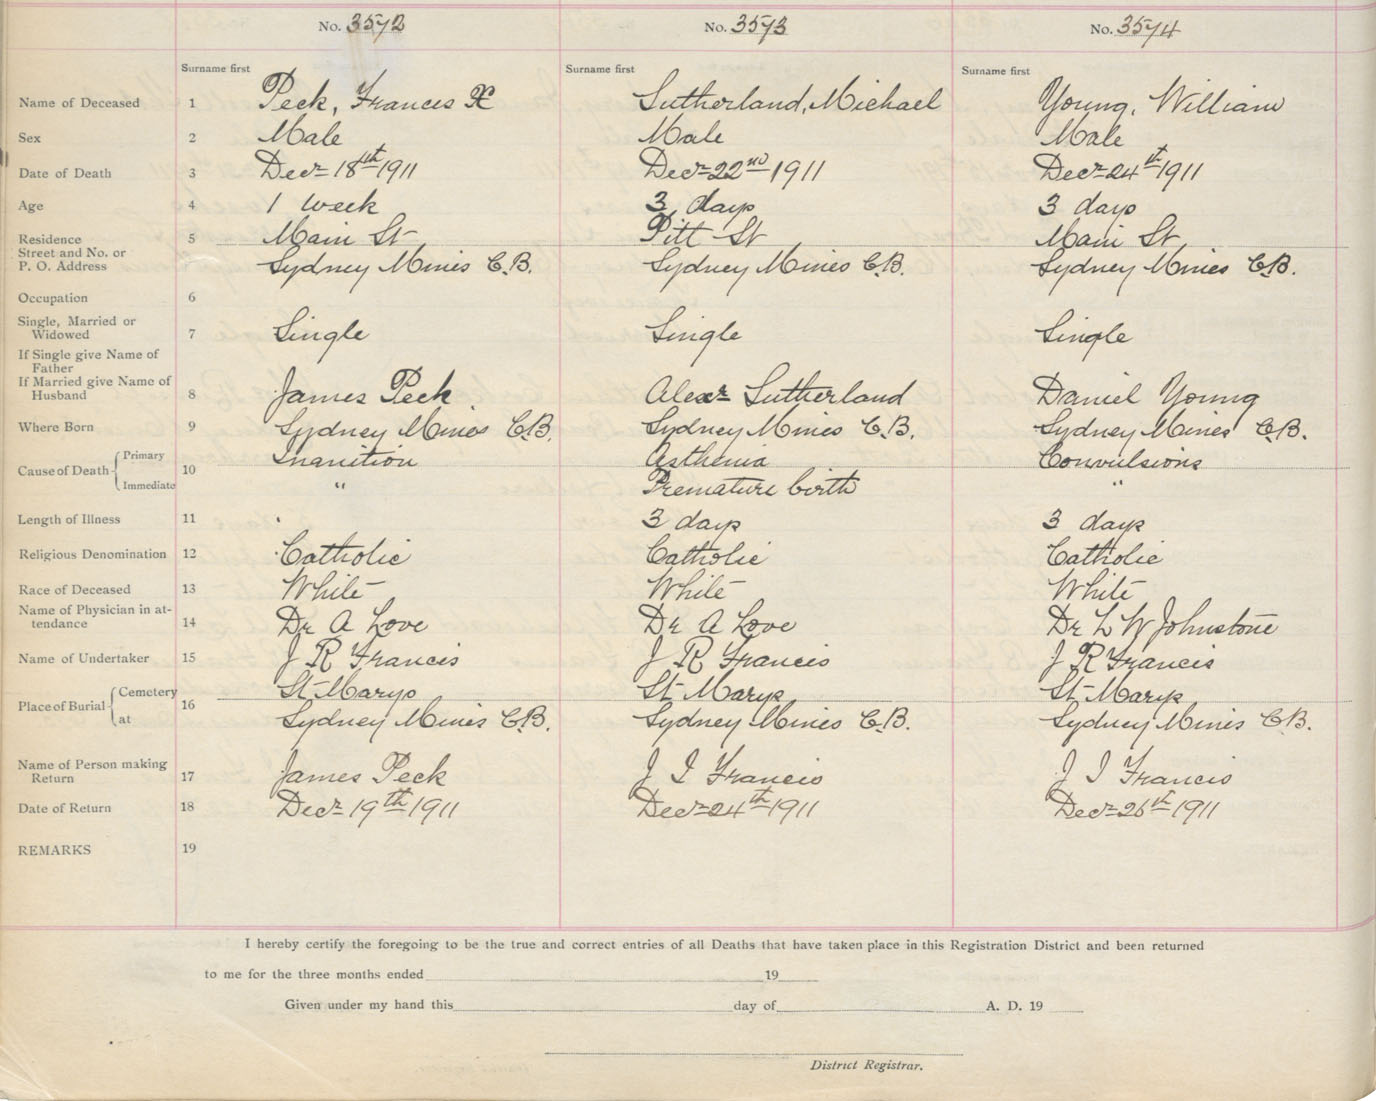 No. 3572 No. 3573 No. 3574
Surname first Surname first Surname first
Name of Deceased 1 Peck, Francis X Sutherland, Michael Young, William
Sex 2 Male Male Male
Date of Death 3 Decr 18th 1911 Decr 22nd 1911 Decr 24th 1911
Age 4 1 week 3 days 3 days
Residence 5 Main St Pitt St Main St
Street and No. or
P. O. Address Sydney Mines C.B. Sydney Mines C.B. Sydney Mines C.B.
Occupation 6
Single, Married or
Widowed 7 Single Single Single
If Single give Name of
Father
If Married give Name of
Husband 8 James Peck Alexr Sutherland Daniel Young
Where Born 9 Sydney Mines C.B. Sydney Mines C.B. Sydney Mines C.B.
Cause of Death Primary 10 Inanition Asthenia Convulsions
Immediate " Premature birth "
Length of Illness 11 3 days 3 days
Religious Denomination 12 Catholic Catholic Catholic
Race of Deceased 13 White White White
Name of Physician in at-
tendance 14 Dr A Love Dr A Love Dr L W Johnstone
Name of Undertaker 15 J R Francis J R Francis J R Francis
Place of Burial Cemetery 16 St Marys St Marys St Marys
at Sydney Mines C.B. Sydney Mines C.B. Sydney Mines C.B.
Name of Person making
Return 17 James Peck J I Francis J I Francis
Date of Return 18 Decr 19th 1911 Decr 24th 1911 Decr 26th 1911
REMARKS 19
I hereby certify the foregoing to be the true and correct entries of all Deaths that have taken place in this Registration District and been returned
to me for the three months ended 19
Given under my hand this day of A. D. 19
District Registrar.